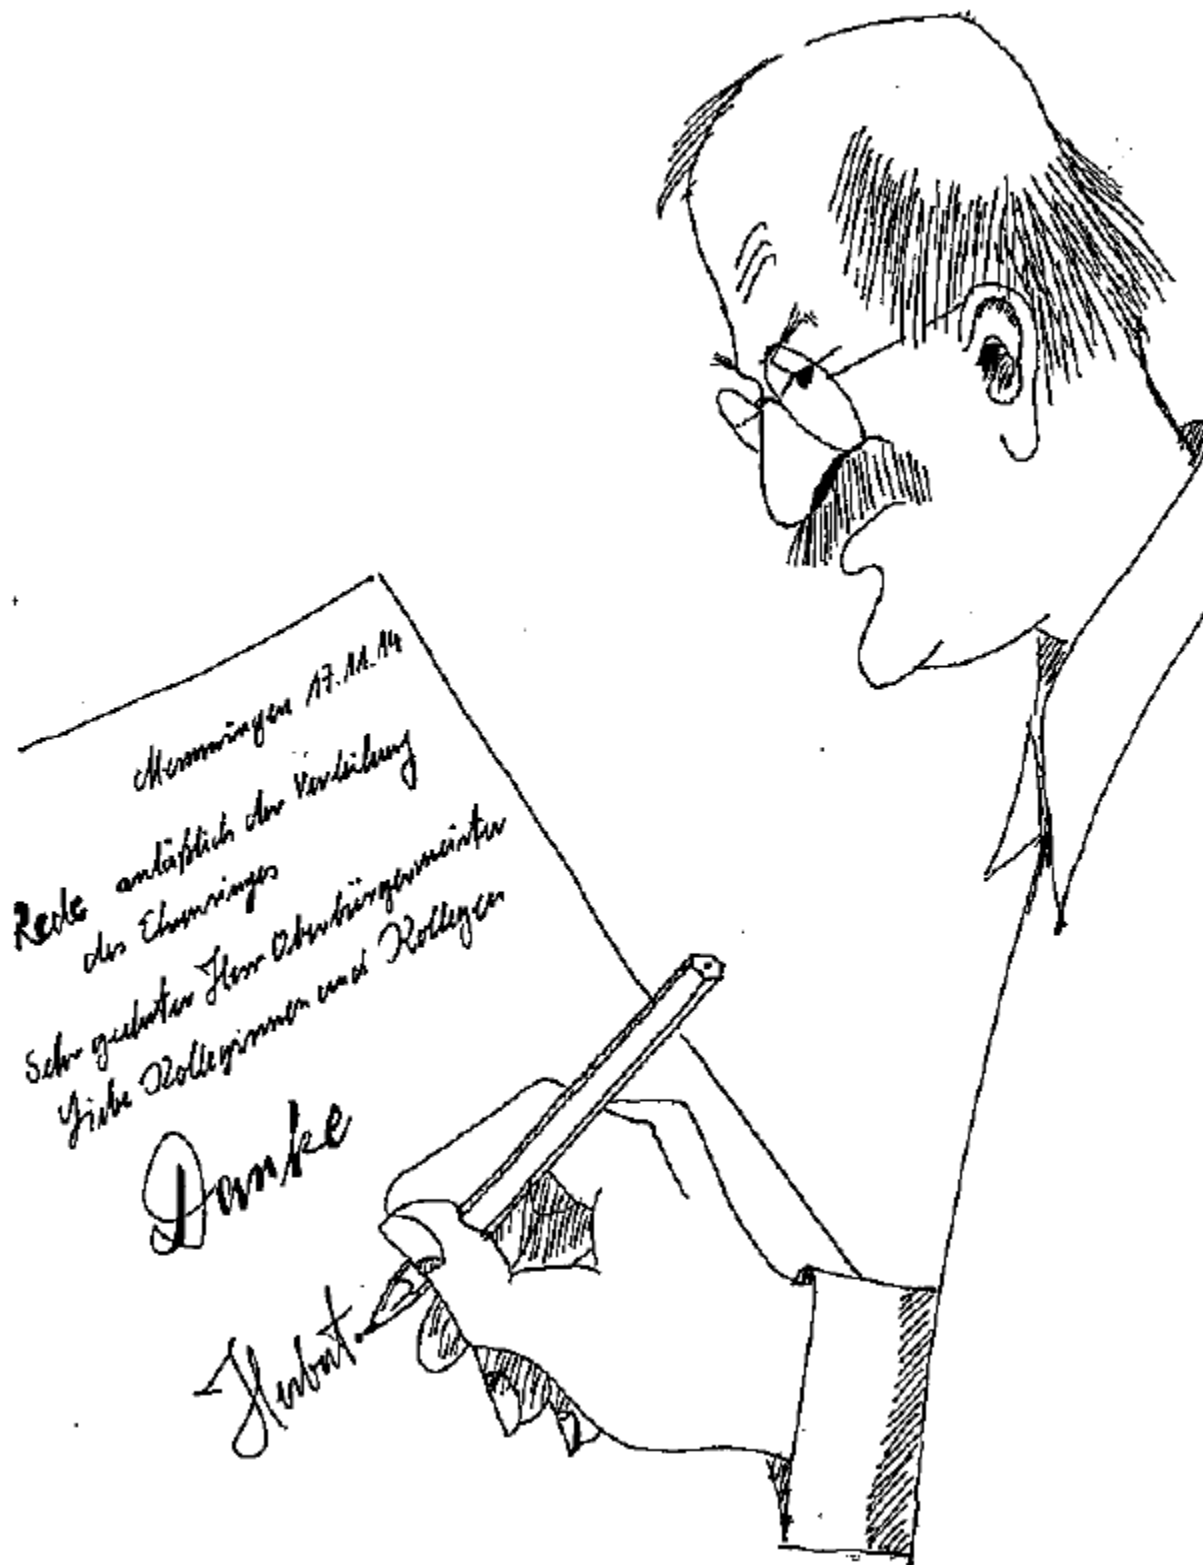 Memmingen 17.11.14
Rede anläßlich der Verleihung
des Ehrenringes
Sehr geehrter Herr Oberbürgermeister
Liebe Kolleginnen und Kollegen
Danke
Herbert